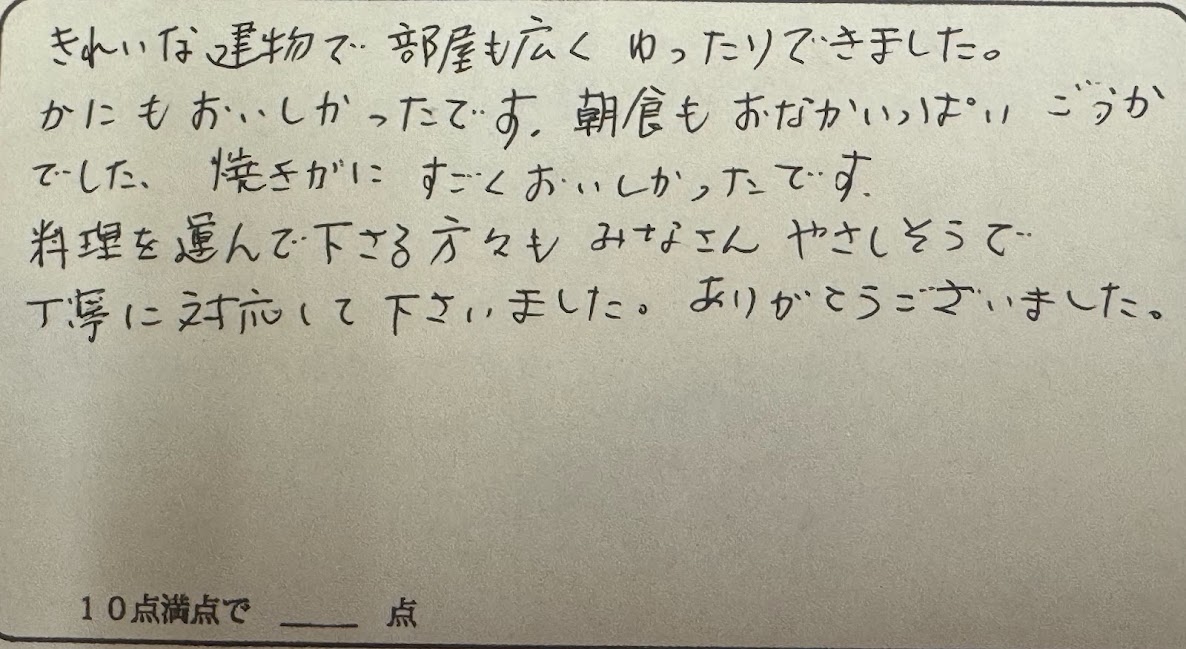 きれいな建物で 部屋も広く ゆったりできました。
かにもおいしかったです。朝食もおなかいっぱい ごうか
でした、 焼きがに すごくおいしかったです。
料理を運んで下さる方々も みなさん やさしそうで
丁寧に対応して下さいました。 ありがとうございました。
10点満点で ____ 点